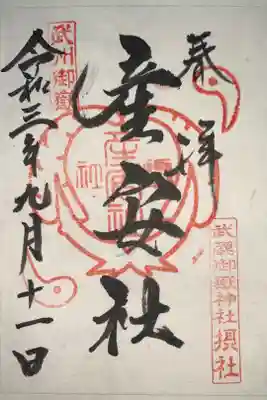 奉拝
武蔵御嶽神社摂社
産安社
武州御嶽
産安社
令和三年九月十一日